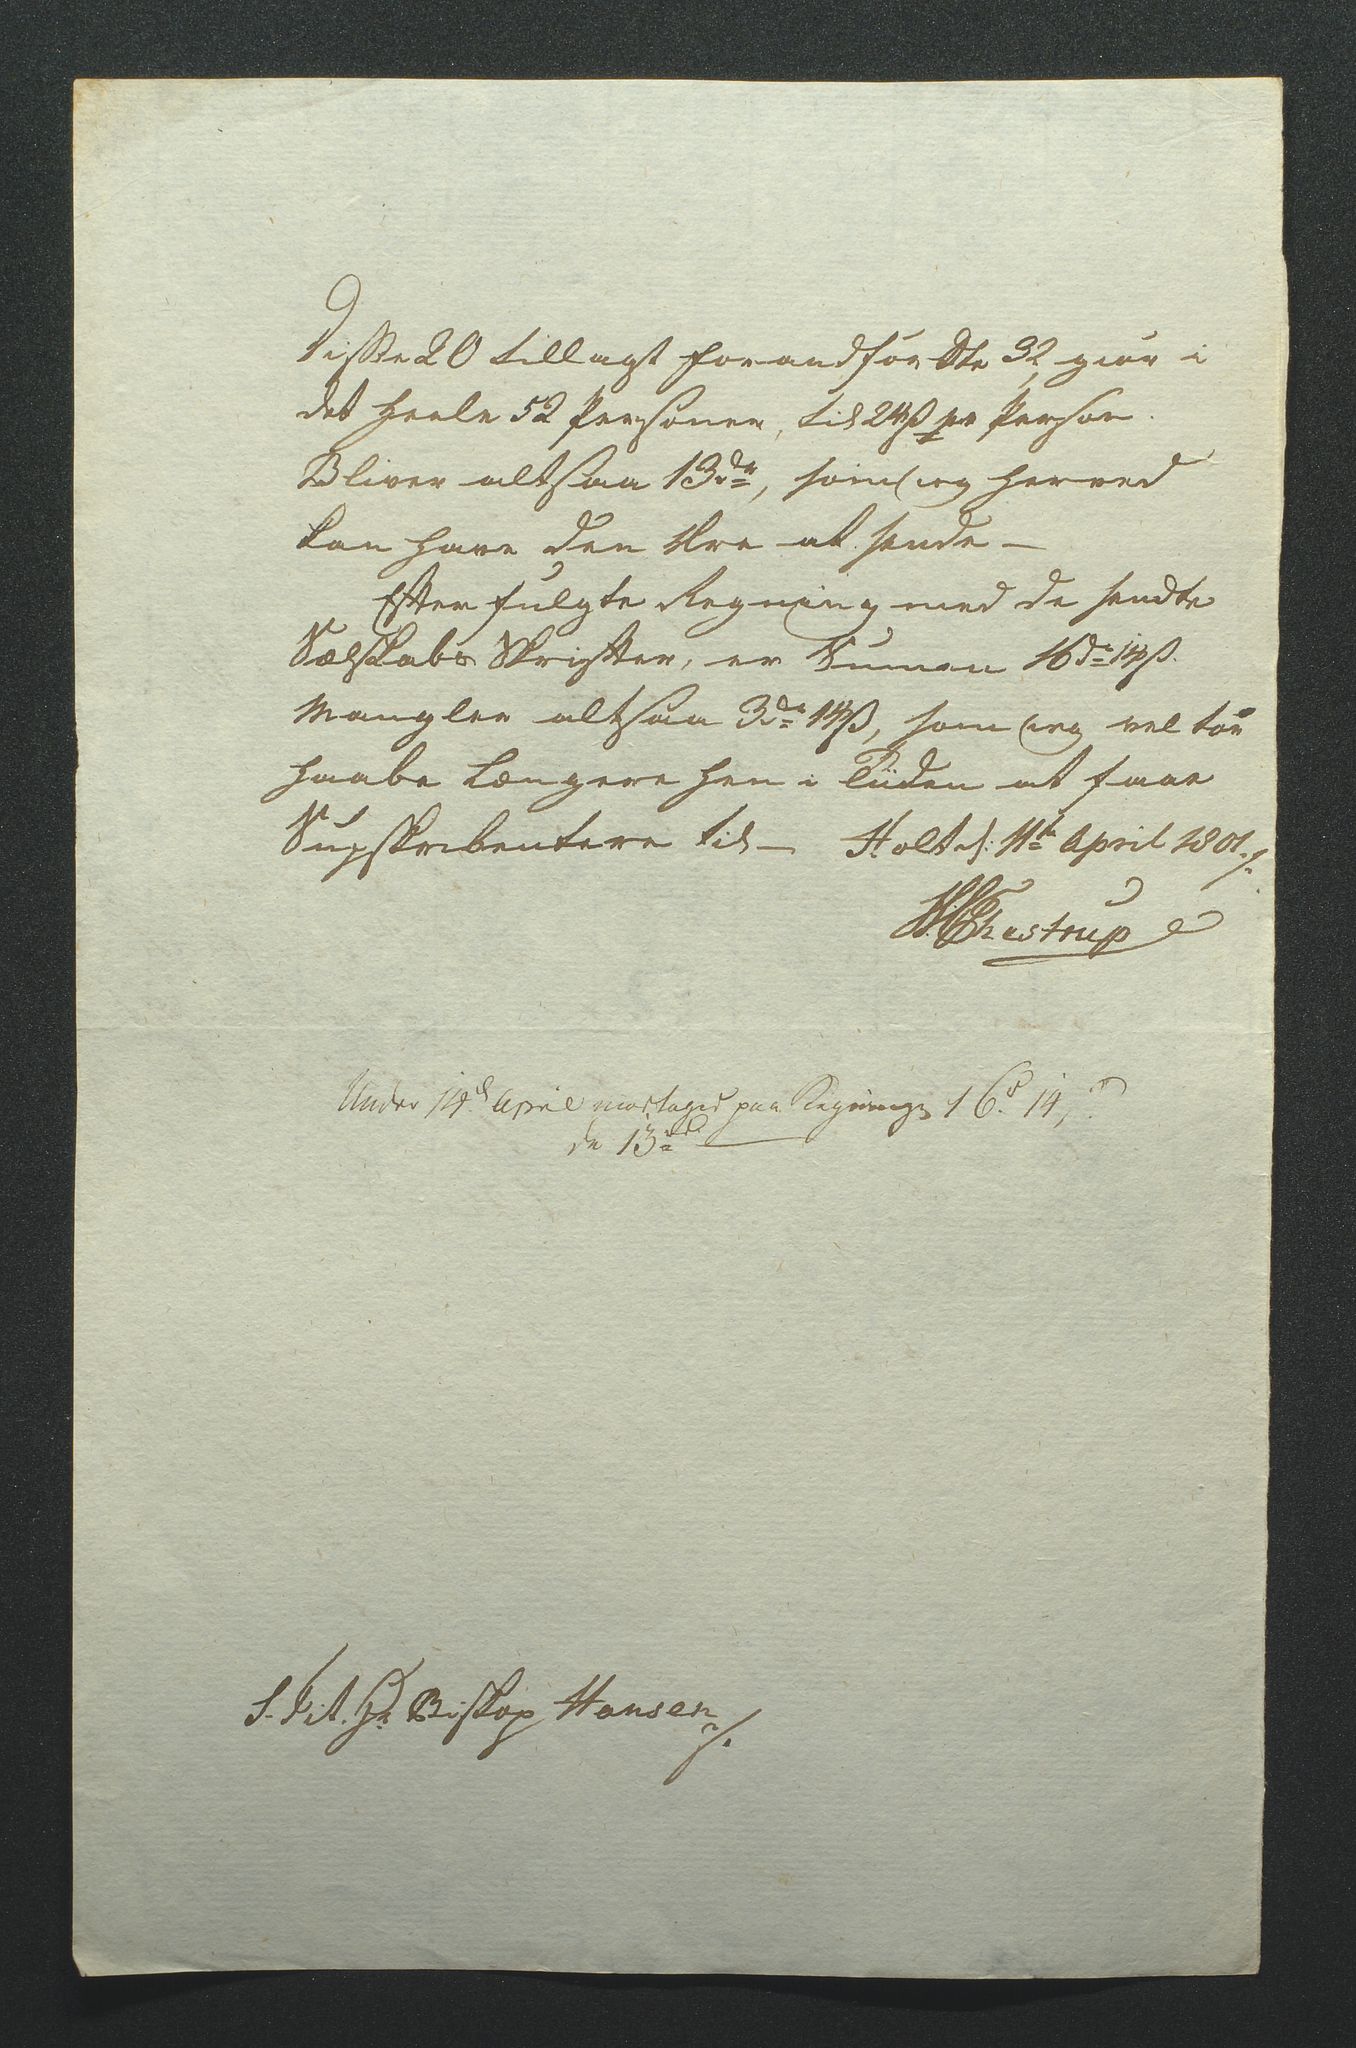 Disse 20 tillagt foranførdte 32, giør i
det heele 52 Personer, til 24ß pr Person.
Bliver altsaa 13 dr, som ieg herved
kan have den Ære at sende —
Efter fulgte Regning med de sendte
Selskabs Skrifter, er Summen 16 dr 14ß.
Mangler altsaa 3 dr 14ß, som ieg vel tør
haabe længere hen i Tiiden at faae
Supskribentere til — Holt d: 11te April 1801 /.
Chestrup
Under 14d April modtaget paa Regning 16d 14,
de 13 rd
S. Tit. Hr Biskop Hansen /.